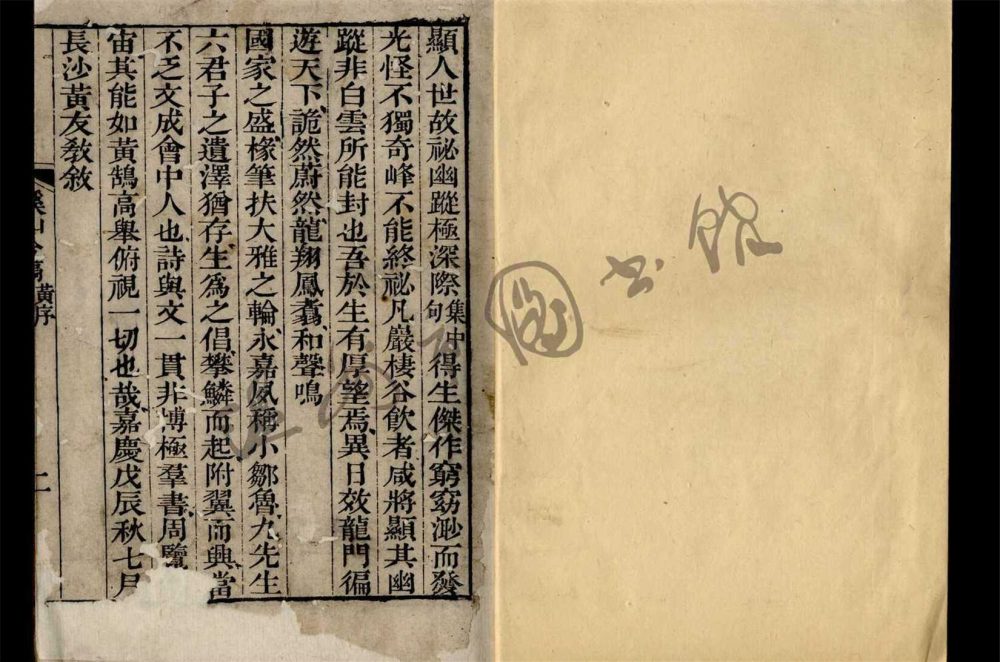 顯人世故祕幽蹤極深際集中句得生傑作窮窈渺而發
光怪不獨奇峰不能終祕凡巖棲谷飲者咸將顯其幽
蹤非白雲所能封也吾於生有厚望焉異日效龍門徧
遊天下詭然蔚然龍翔鳳翥和聲鳴
國家之盛椽筆扶大雅之輪永嘉夙稱小鄒魯九先生
六君子之遺澤猶存生爲之倡攀鱗而起附翼而興當
不乏文成會中人也詩與文一貫非博極羣書周覽
宙其能如黃鵠高舉俯視一切也哉嘉慶戊辰秋七月
長沙黃友敎敘
黃序
二
圖書館